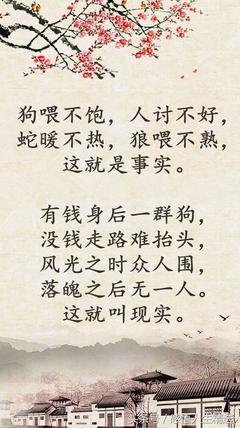 狗喂不饱，人讨不好，
蛇暖不热，狼喂不熟，
这就是事实。
有钱身后一群狗，
没钱走路难抬头，
风光之时众人围，
落魄之后无一人。
这就叫现实。